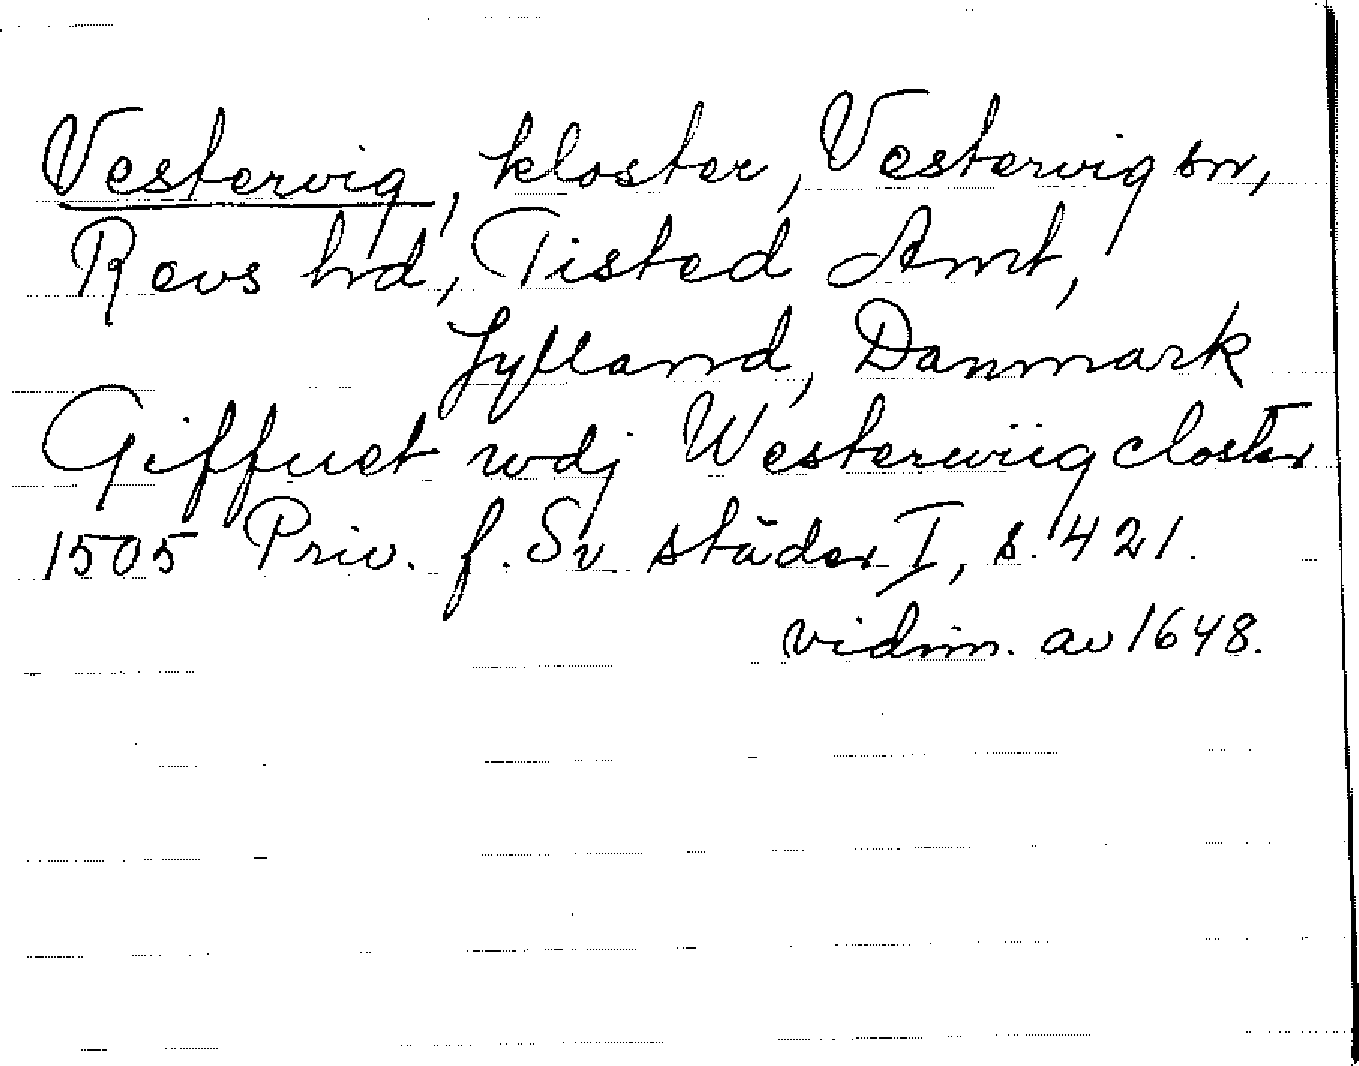 Vestervig, kloster, Vestervig sn,
Revs hrd, Tisted Amt,
Jylland, Danmark
Giffuet wdj Westerwiigcloster
1505 Priv. f. Sv städer I, s. 421.
vidim. av 1648.